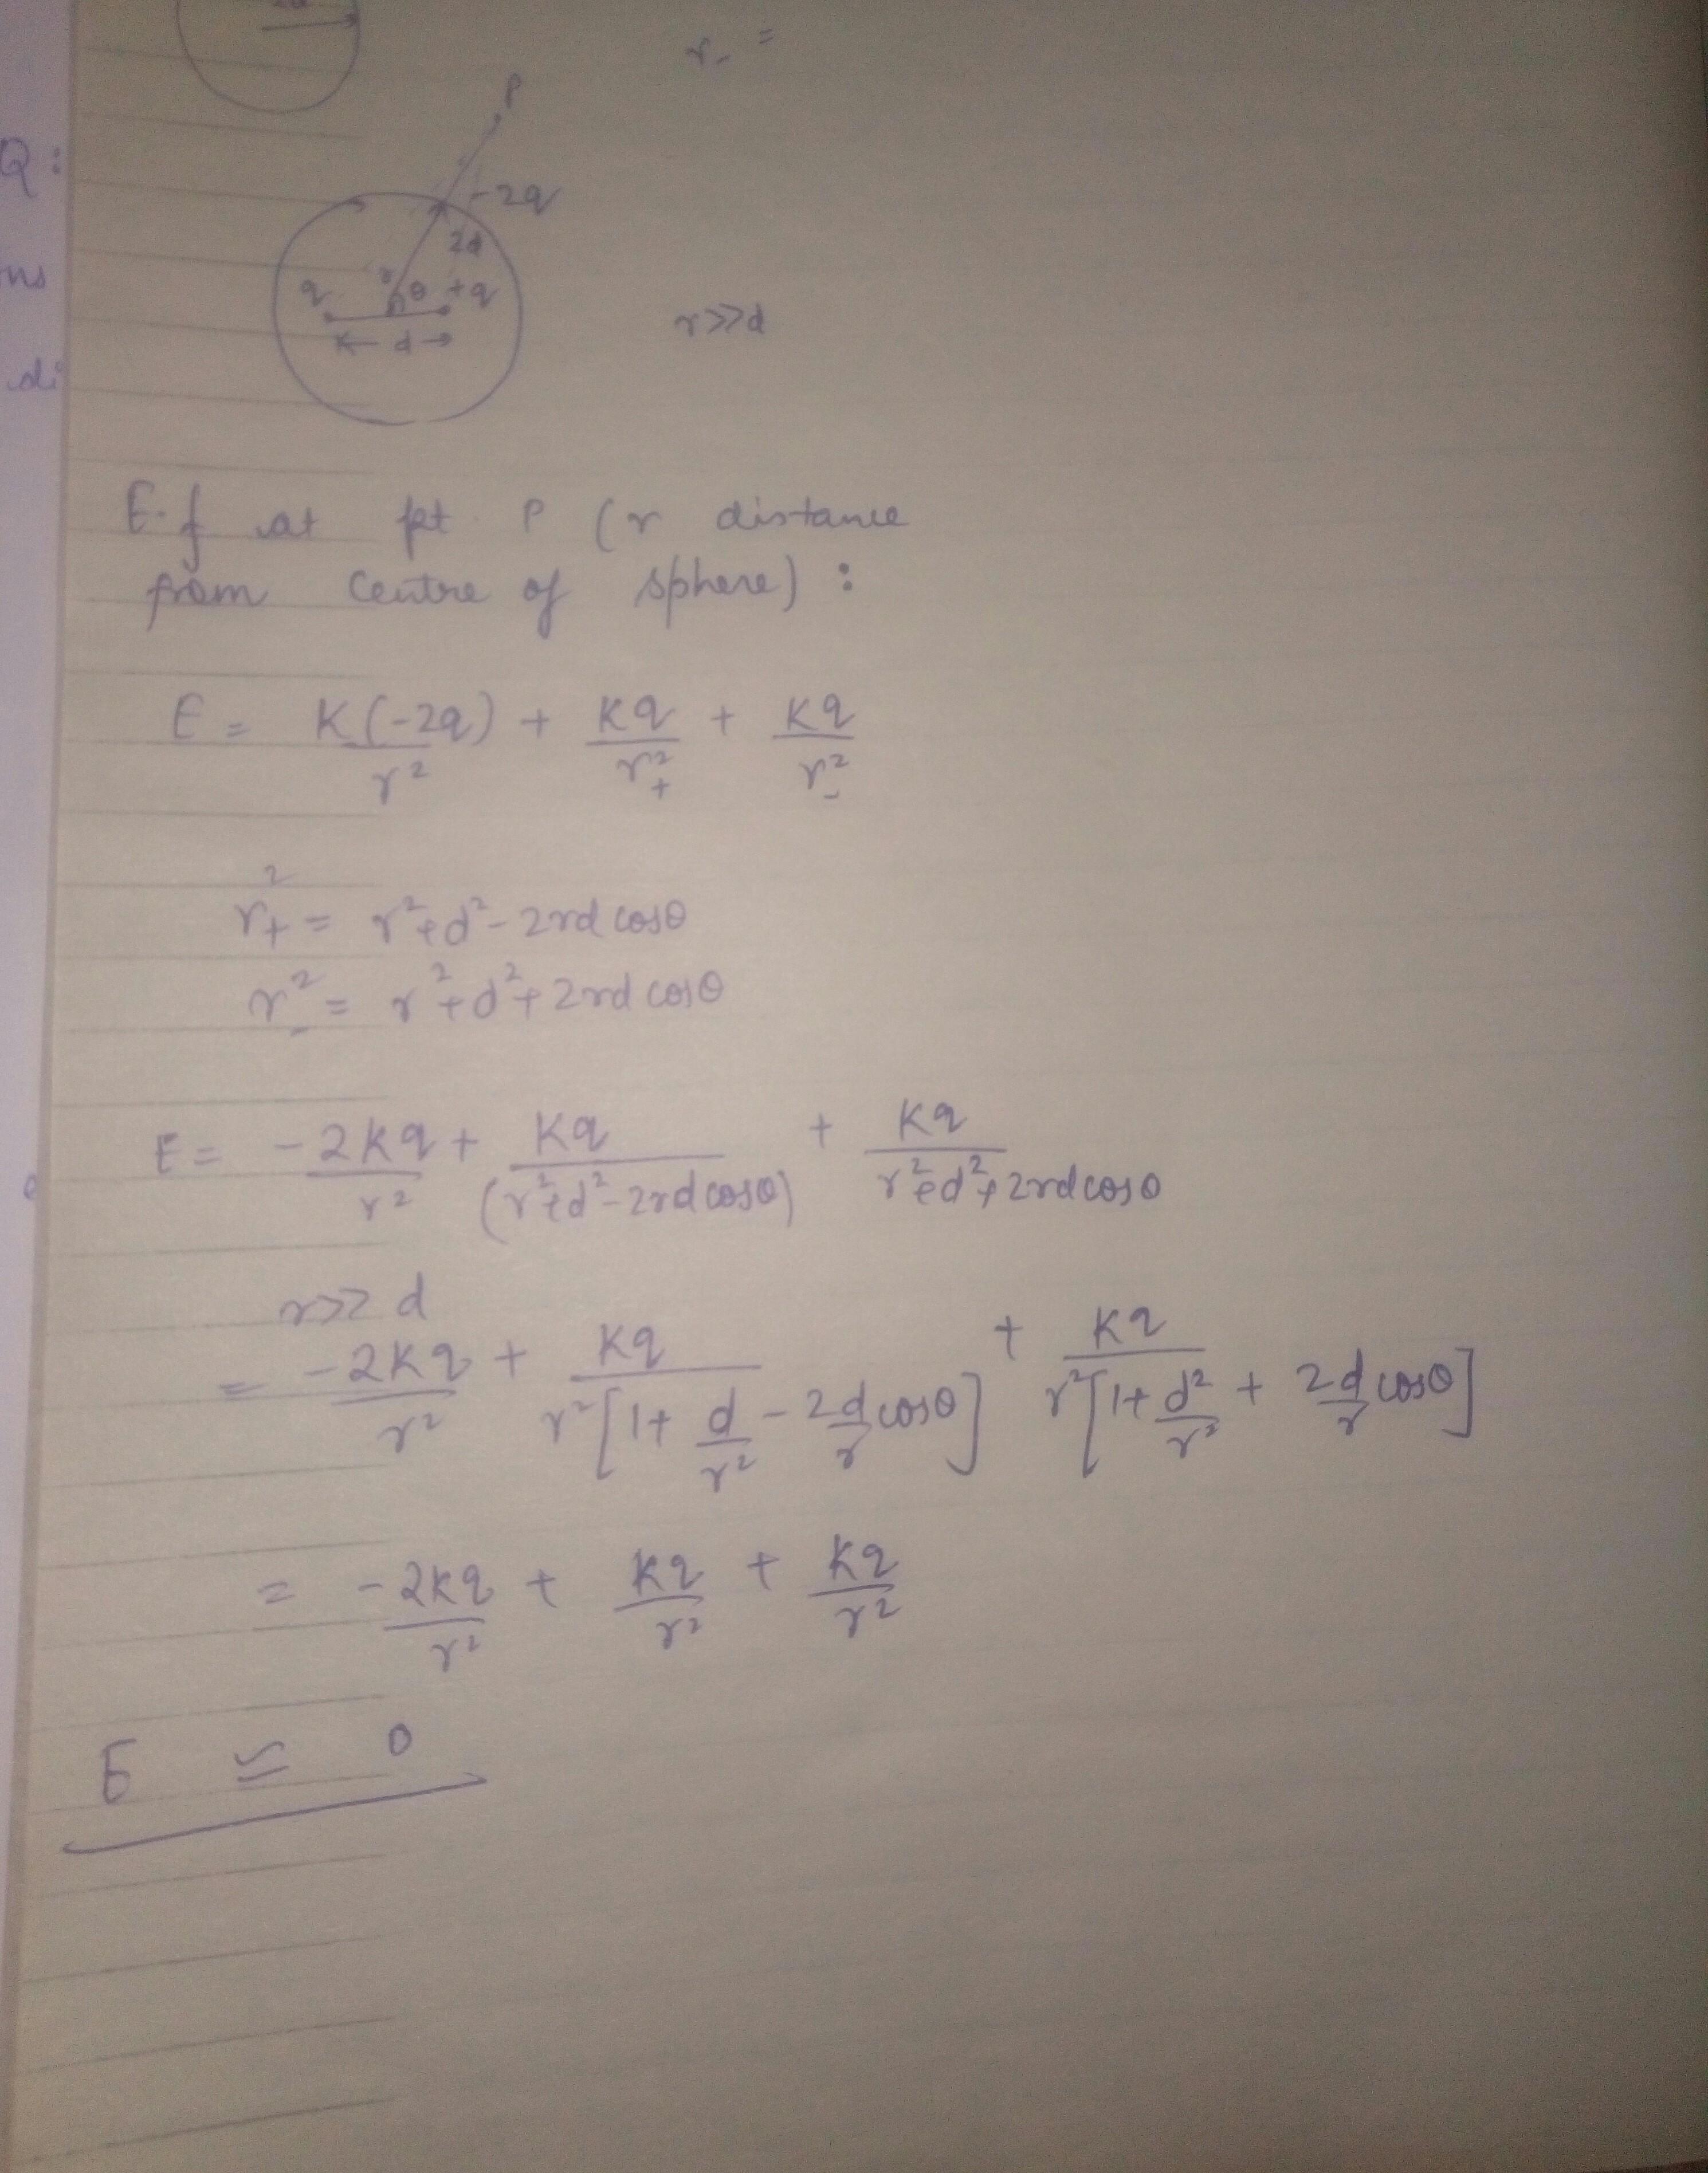 r₋ =
P
Q:
-2q
2d
ns
r
θ
q
+q
d
r>>d
di
E.f at pt. P (r distance
from centre of sphere) :
E = K(-2q)/r² + Kq/r₊² + Kq/r₋²
r₊² = r²+d²-2rd cosθ
r₋² = r²+d²+2rd cosθ
E = -2Kq/r² + Kq/(r²+d²-2rd cosθ) + Kq/r²+d²+2rd cosθ
r>>d
= -2Kq/r² + Kq/r²[1+ d/r² - 2d/r cosθ] + Kq/r²[1+ d²/r² + 2d/r cosθ]
= -2Kq/r² + Kq/r² + Kq/r²
E ≃ 0